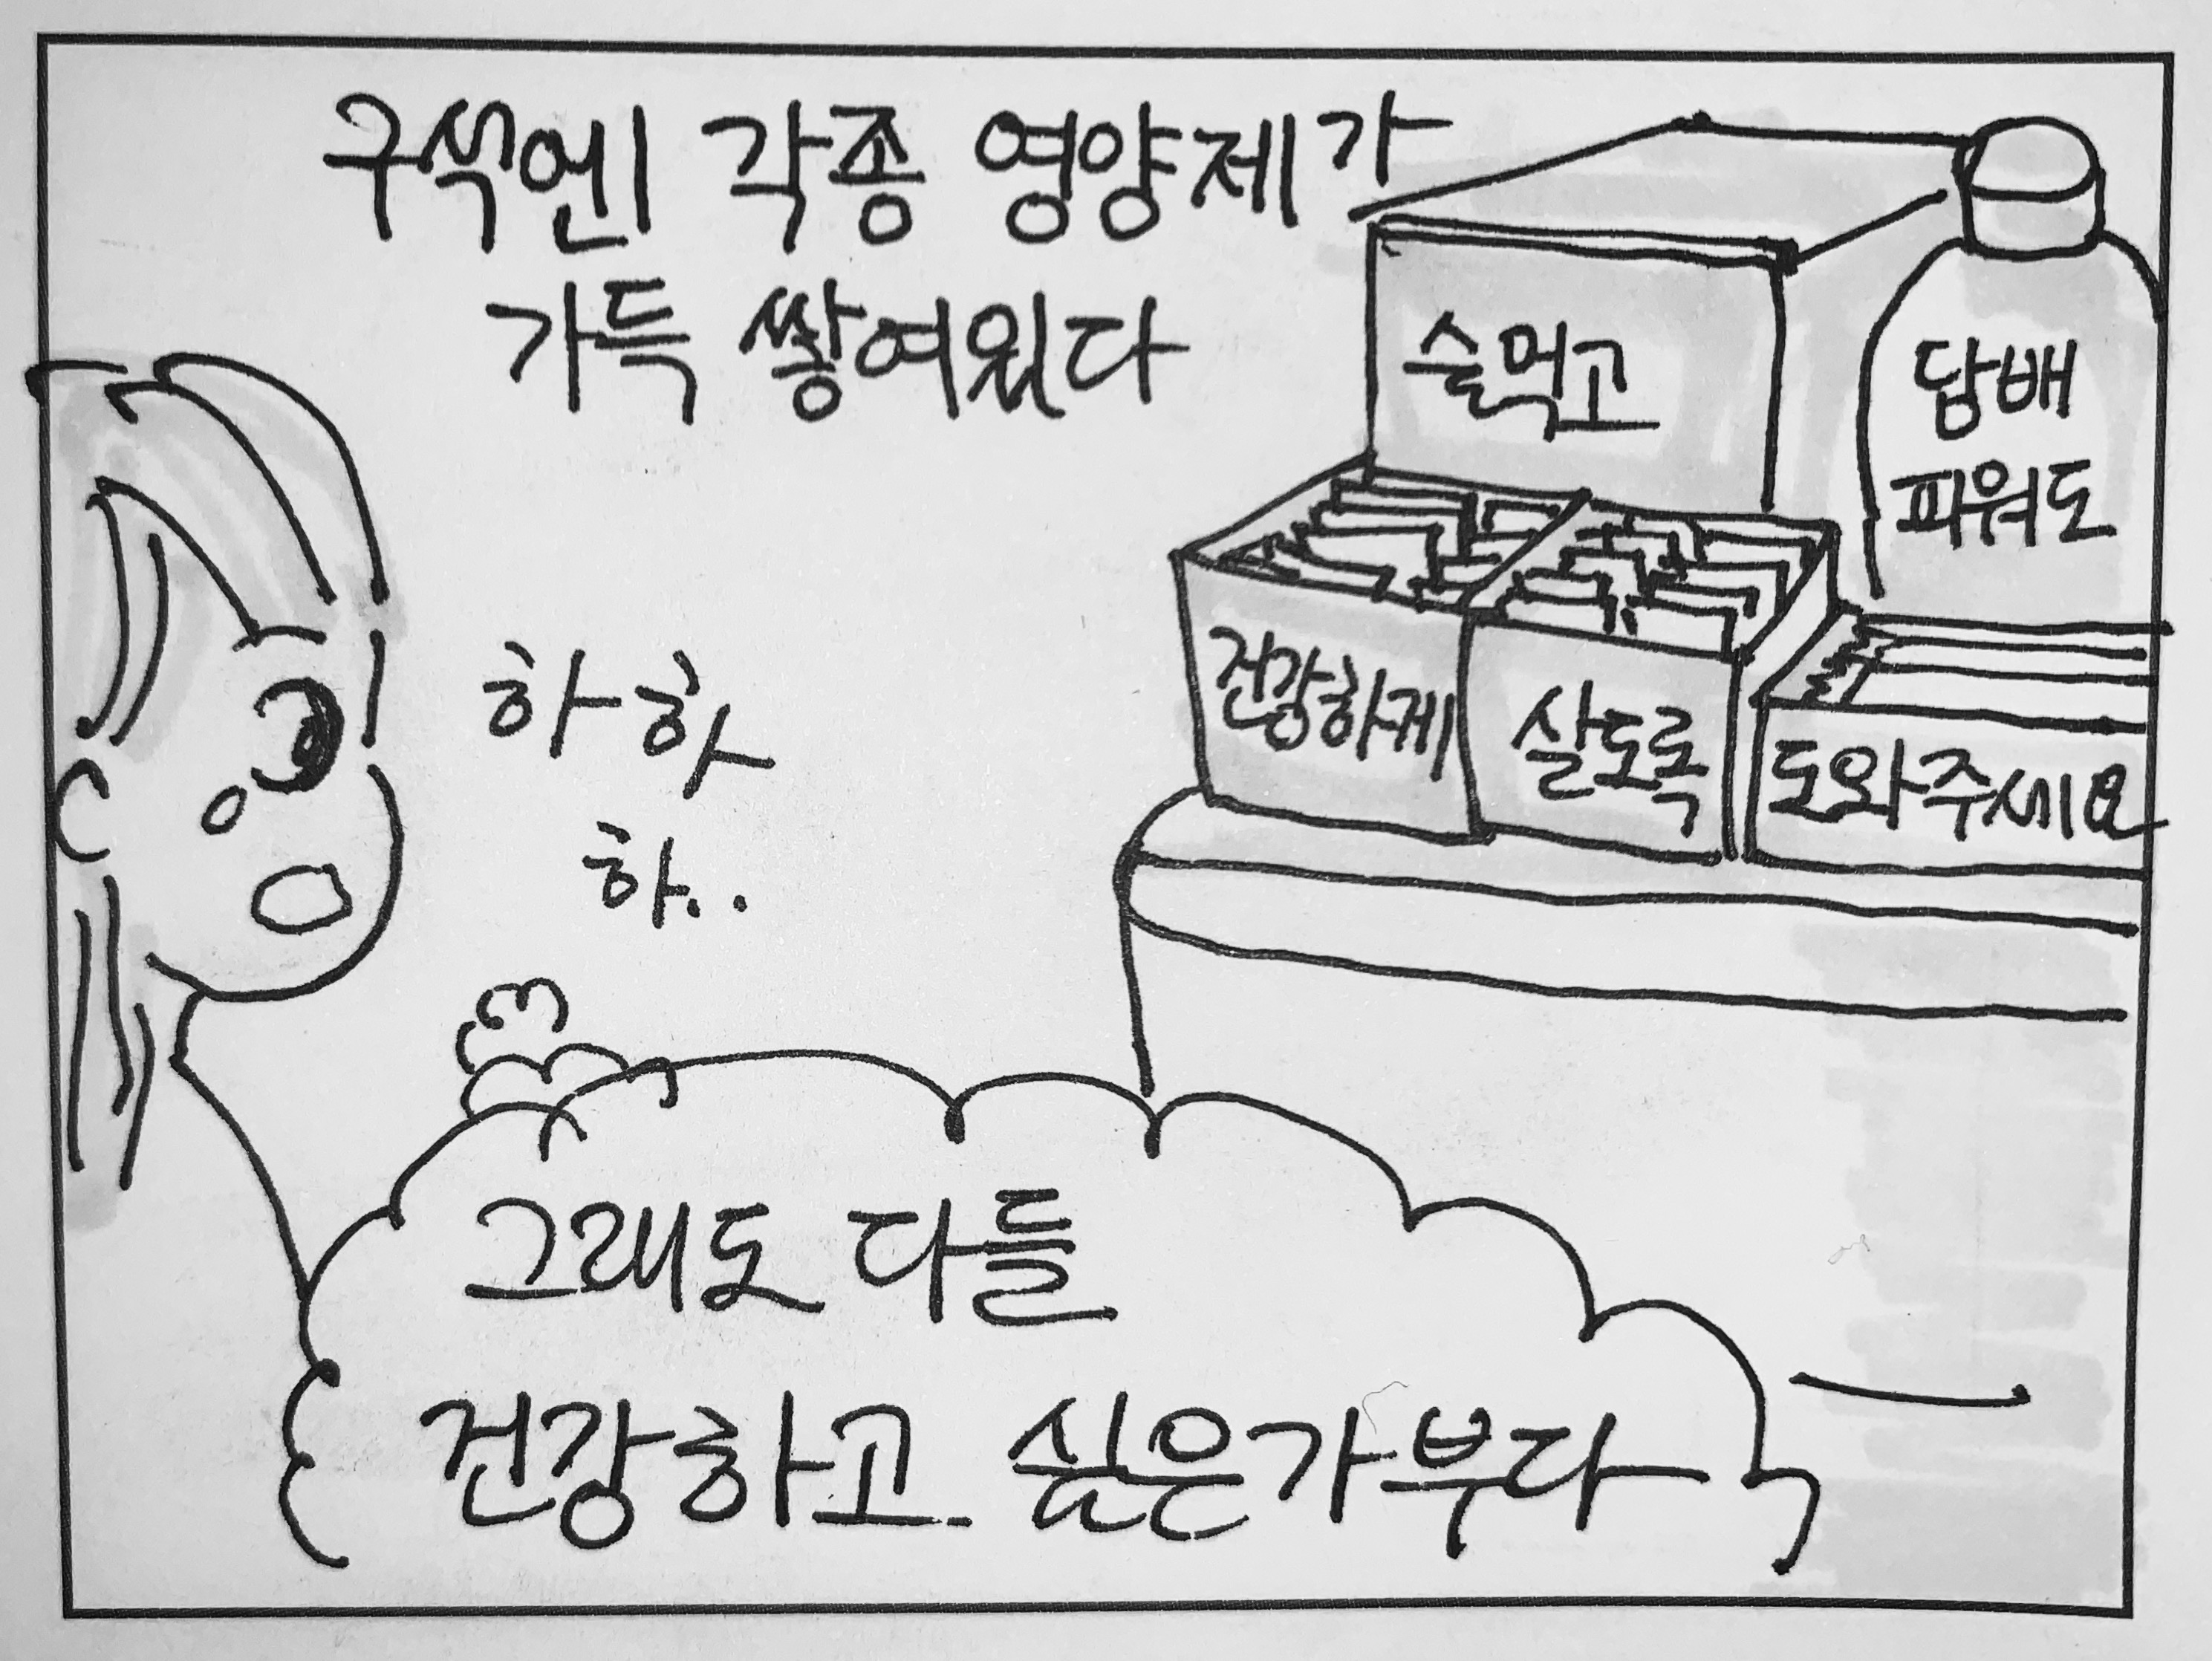 구석엔 각종 영양제가
가득 쌓여있다
술먹고
담배
피워도
건강하게
살도록
도와주세요
하하
하..
그래도 다들
건강하고 싶은가부다